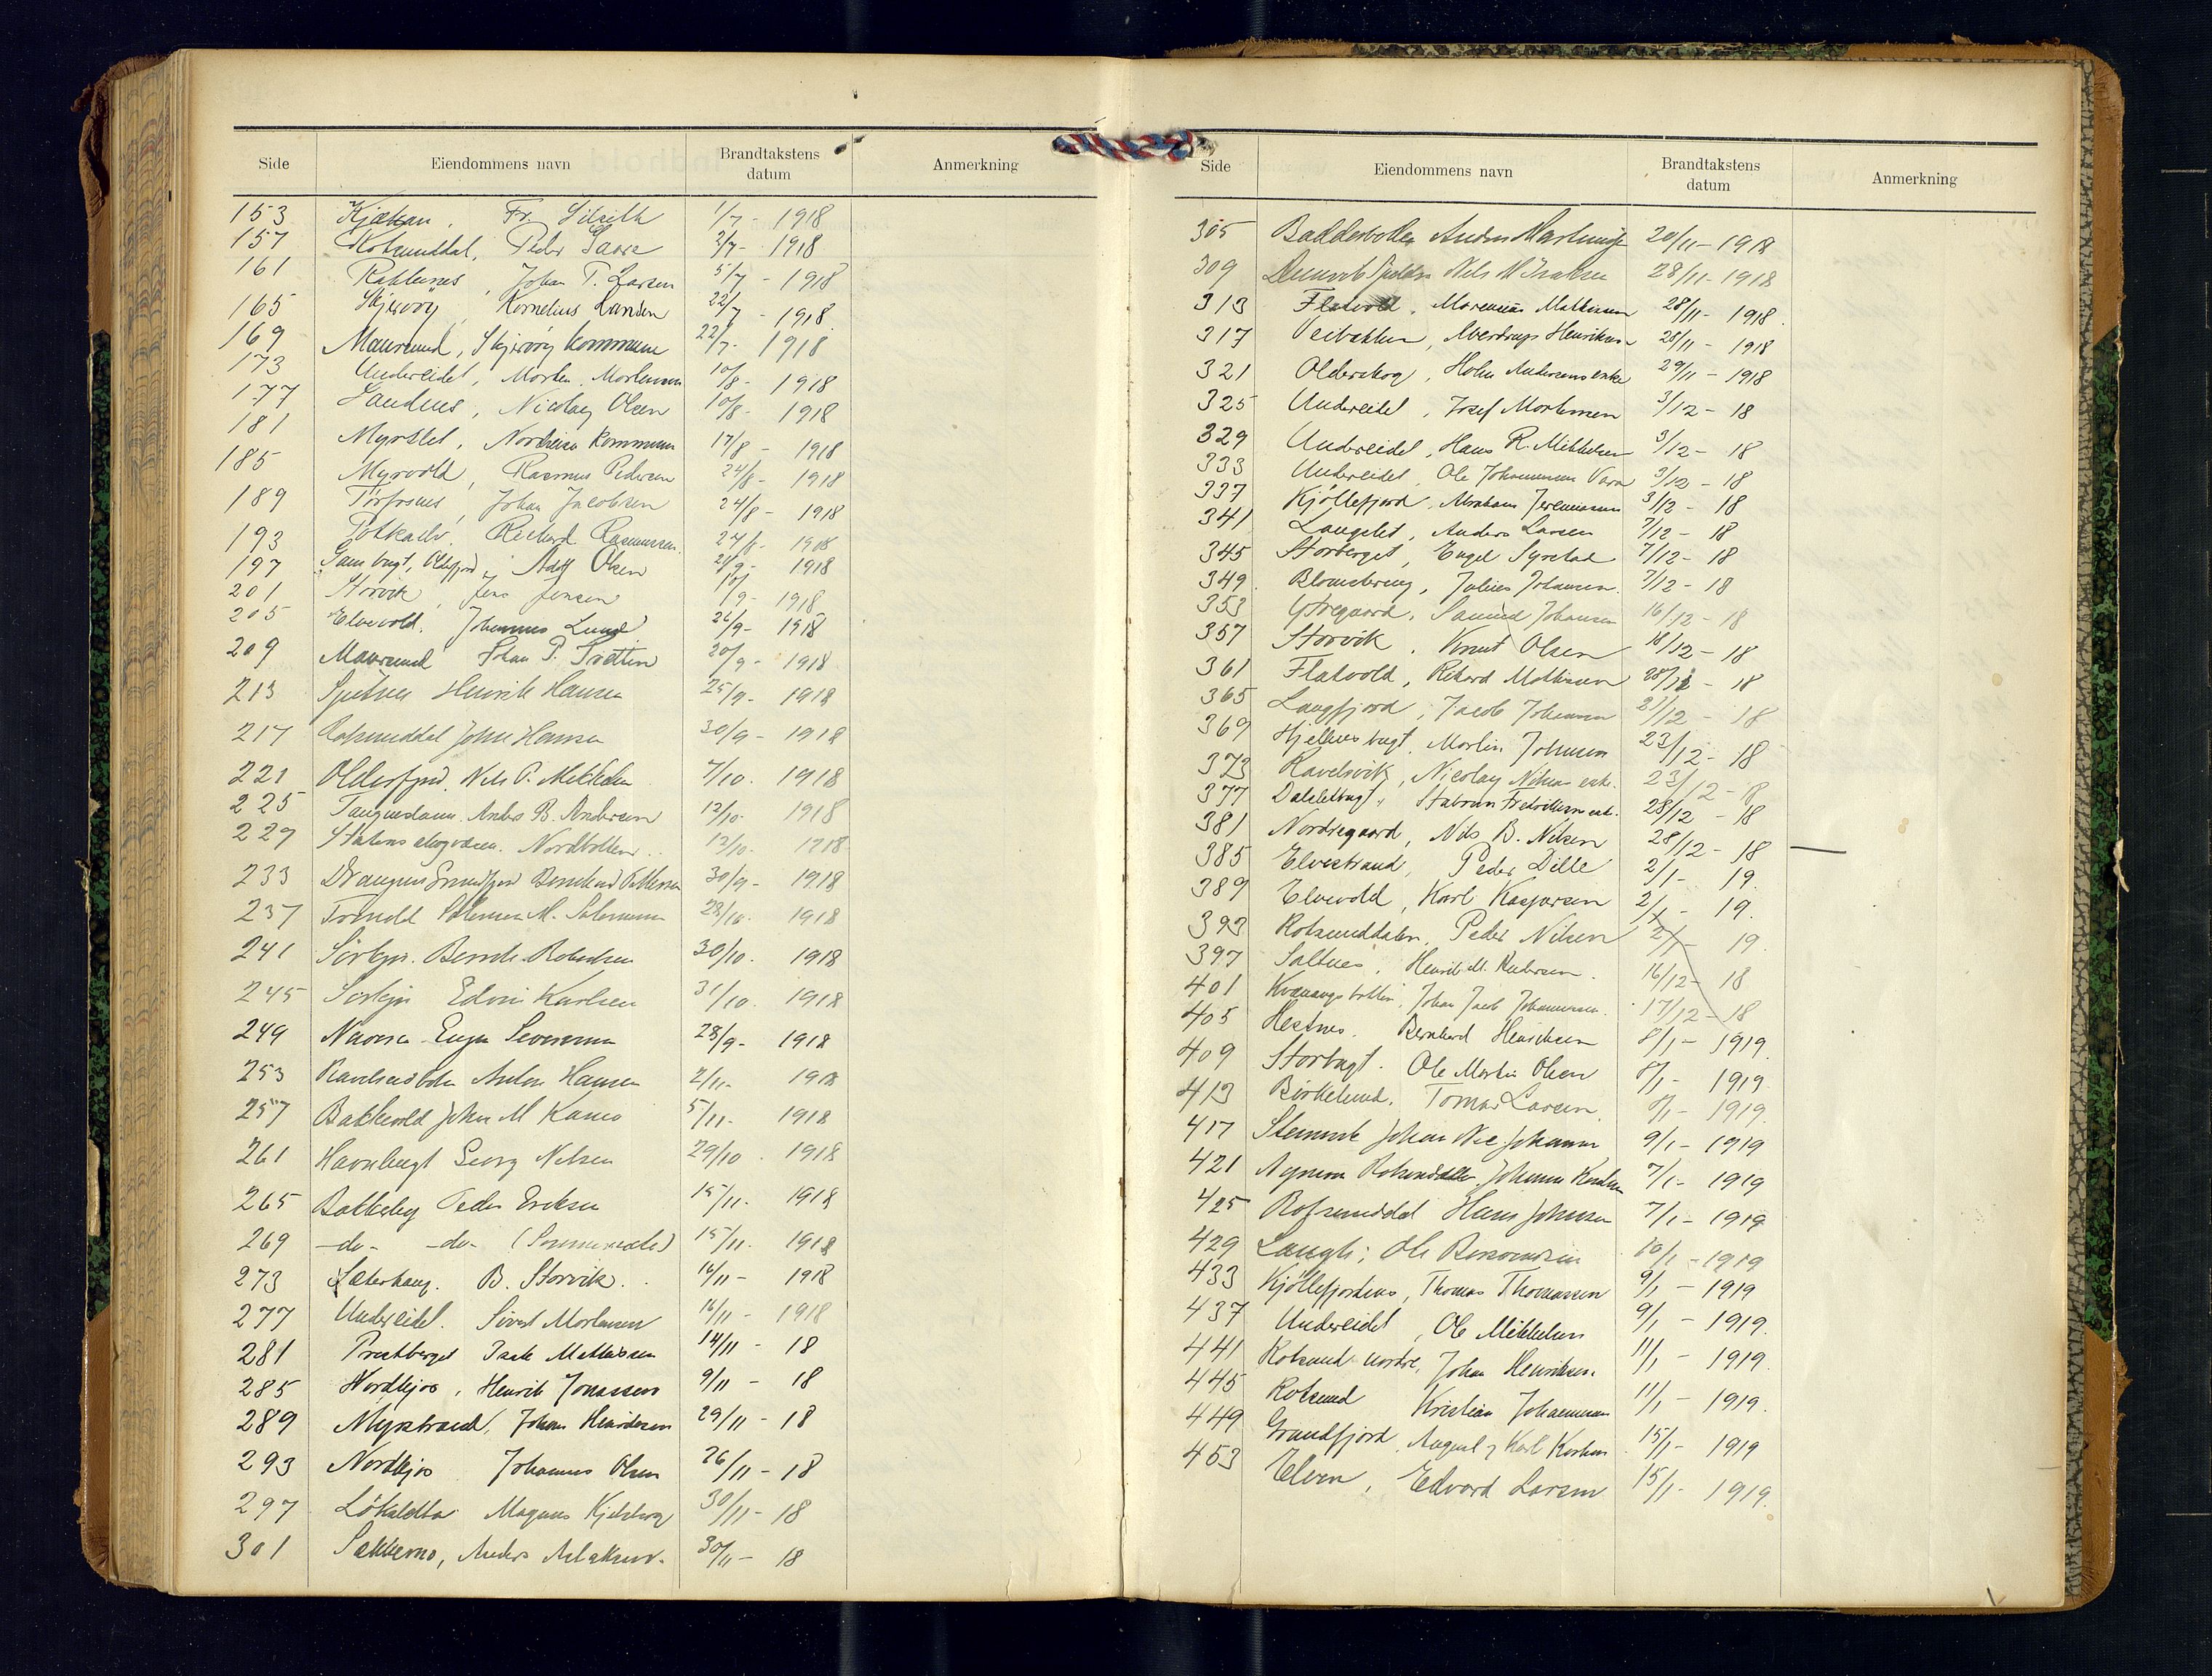 Side Eiendommens navn Brandtakstens datum Anmerkning
153 Kjækan, Fr. 1/7 - 1918
157 Rotsunddal, Peder 2/7 - 1918
161 Johan P. Larsen 5/7 - 1918
165 Skjervöy, Kornelius Larsen 22/7 - 1918
169 Maursund, Skjervöy kommune 22/7 - 1918
173 Undereidet, Morten Mortensen 10/8 - 1918
177 Sandnes, Nicolay Olsen 10/8 - 1918
181 Myrslet, Nordreisa kommune 17/8 - 1918
185 Myrvold, Rasmus Pedersen 24/8 - 1918
189 Johan Jacobsen 24/8 - 1918
193 Rasmussen 24/8 - 1918
197 bugt, Oldefjord, Adolf Olsen 1918
201 Storvik, Jens Jensen /9 - 1918
205 Elvevold. Johannes Lund 26/9 - 1918
209 Maursund Johan P. 20/9 - 1918
213 Spilnes Henrik Hansen 25/9 - 1918
217 Rotsunddal John Hansen 30/9 - 1918
221 Olderfjord. Nils P. Mikkelsen 7/10. 1918
225 Anders B. Andersen 12/10. 1918
229 Statens skogvæsen. Nordbotten 12/10. 1918
233 30/9 - 1918
237 Salomon M. Salomonsen 1918
241 Sörkjos. Bernh. Robertsen 30/10. 1918
245 Sörkjos Edvin Karlsen 31/10. 1918
249 28/9 - 1918
253 Anton Hansen 2/11. 1918
257 Bakkevold John M 5/11. 1918
261 Havnbugt Georg Nilsen 29/10. 1918
265 Bakkeby Peder Eriksen 15/11. 1918
269 - do - - do - 15/11. 1918
273 Sæterhaug. B. Storvik. 16/11 - 1918
277 Undereidet. Sivert Mortensen 16/11 - 1918
281 Præstberget Isak Mathissen 14/11 - 18
285 Nordkjos, Henrik Jonassen 9/11 - 18
289 Myrstrand, Johan Henriksen 29/11 - 18
293 Nordkjos Johannes Olsen 26/11 - 18
297 Lökslætta Magnus Kjelsberg 30/11 - 18
301 Sakkemo, Anders Aslaksen. 30/11 - 18
Side Eiendommens navn Brandtakstens datum Anmerkning
305 Badderbotten 20/11 - 1918
309 Nils Isaksen 28/11 - 1918
313 Flatvold, Marenius Mathisen 28/11 - 1918
317 Veibakken, Henriksen 28/11 - 1918
321 Olderskog, Andersens enke 29/11 - 1918
325 Undereidet, Josef Mortensen 3/12 - 18
329 Undereidet, Hans R. Mikkelsen 3/12 - 18
333 Undereidet, Ole Johannesen 3/12 - 18
337 Kjöllefjord, Abraham Jeremiassen 3/12 - 18
341 Langslet, Anders Larsen 7/12 - 18
345 Storberget, Engel Syrstad 7/12 - 18
349 Blomstereng, Julius Johansen. 7/12 - 18
353 Samuel Johansen 16/12 - 18
357 Storvik, Knut Olsen 18/12 - 18
361 Flatvold, Rikard Mathisen - 18
365 Langfjord, Jacob Johansen 21/12 - 18
369 Hjellnes bugt, Martin Johnsen 23/12 - 18
373 Ravelsvik, Nicolay Nilsens enke. 23/12 - 18
377 Dalsletbugt, Fredriksens enke. 28/12 - 18
381 Nordregaard, Nils B. Nilsen 28/12 - 18
385 Elvestrand, Peder Dille 2/1 - 19.
389 Elvevold, Karl Kaspersen 2/1 - 19.
393 Rotsunddalen, Peder Nilsen 2/1 - 19.
397 Saltnes, Henrik M. Pedersen. 16/12 - 18
401 Kvænangsbotten, Johan Jacob Johannesen. 17/12 - 18
405 Hestnes. Bernhard Henriksen 8/1 - 1919
409 Storbugt. Ole Martin Olsen 8/1 - 1919.
413 Birkelund. Tomas Larsen. 8/1 - 1919.
417 Johan Johansen 9/1 - 1919
421 Rotsunddalen, Johannes 7/1 - 1919
425 Rotsunddal Hans Johnsen 7/1 - 1919
429 Ole 10/1 - 1919
433 Kjöllefjordnes, Thomas Thomassen 9/1 - 1919
437 Undereidet, Ole Mikkelsen 9/1 - 1919.
441 Rotsund nordre, Johan Henriksen. 11/1 - 1919.
445 Rotsund Kristian Johannesen 11/1 - 1919.
449 Grundfjord, August & Karl Karlsen 15/1 - 1919
453 Elven, Edvard Larsen 15/1 - 1919.